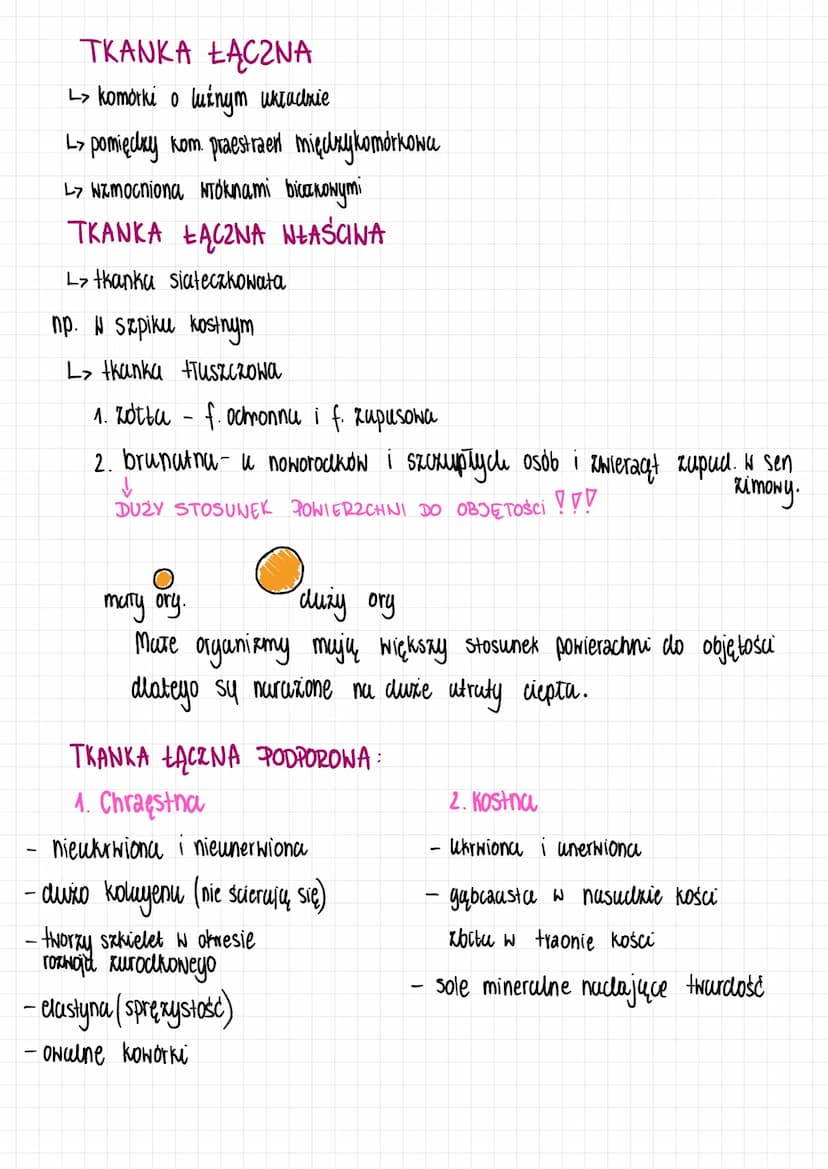 TKANKA ŁĄCZNA
↳ komórki o luźnym układzie
↳ pomiędzy kom. przestrzeń międzykomórkowa
↳ wzmocniona włóknami białkowymi
TKANKA ŁĄCZNA WŁAŚCIWA
↳ tkanka siateczkowata
np. w szpiku kostnym
↳ tkanka tłuszczowa
1. żółta - f. ochronna i f. zapasowa
2. brunatna- u noworodków i szczupłych osób i zwierząt zapad. w sen zimowy.
↓
DUŻY STOSUNEK POWIERZCHNI DO OBJĘTOŚCI !!!
mały org. duży org
Małe organizmy mają większy stosunek powierzchni do objętości
dlatego są narażone na duże utraty ciepła.
TKANKA ŁĄCZNA PODPOROWA:
1. Chrzęstna
- nieukrwiona i nieunerwiona
- dużo kolagenu (nie ścierają się)
- tworzy szkielet w okresie
rozwoju zarodkowego
- elastyna (sprężystość)
- owalne komórki
2. Kostna
- ukrwiona i unerwiona
- gąbczasta w nasadzie kości
zbita w trzonie kości
- sole mineralne nadające twardość